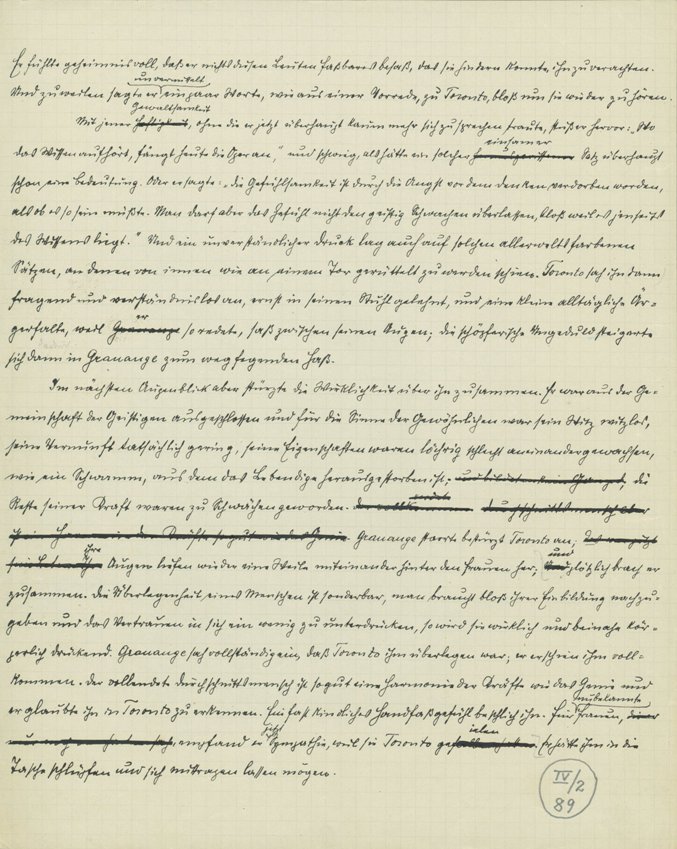 Er fühlte geheimnisvoll, daß er nichts diesen Leuten Faßbares besaß, das sie hindern konnte, ihn zu verachten.
unvermittelt
Und zuweilen sagte er ein paar Worte, wie aus einer Vorrede, zu Toronto, bloß um sie wieder zu hören.
Gewaltsamkeit
Mit jener Heftigkeit, ohne die er jetzt überhaupt kaum mehr sich zu sprechen traute, stieß er hervor: „Wo
einsamer
das Wissen aufhört, fängt heute die Oper an," und schwieg, als hätte ein solcher Satz überhaupt
schon eine Bedeutung. Oder er sagte: „die Gefühlsamkeit ist durch die Angst vor dem denken verdorben worden,
als ob es so sein müßte. Man darf aber das Gefühl nicht den geistig Schwachen überlassen, bloß weil es jenseits
des Wissens liegt." Und ein unverständlicher Druck lag auch auf solchen allerweltsfarbenen
Sätzen, an denen von innen wie an einem Tor gerüttelt zu werden schien. Toronto sah ihn dann
fragend und verständnislos an, ernst in seinen Stuhl gelehnt, und eine kleine alltägliche Är-
er
gerfalte, weil Grauauge so redete, saß zwischen seinen Augen; die schöpferische Ungeduld steigerte
sich dann in Grauauge zum wegfegenden Haß.
Im nächsten Augenblick aber stürzte die Wirklichkeit über ihn zusammen. Er war aus der Ge-
meinschaft der Geistigen ausgeschlossen und für die Sinne der Gewöhnlichen war sein Witz witzlos,
seine Vernunft tatsächlich gering, seine Eigenschaften waren löchrig schlecht aneinandergewachsen,
wie ein Schwamm, aus dem das Lebendige herausgestorben ist; die
Reste seiner Kraft waren zu Schwächen geworden.
Grauauge starrte bestürzt Toronto an;
ihre und
Augen liefen wieder eine Weile miteinander hinter den Frauen her, plötzlich brach er
zusammen. die Überlegenheit eines Menschen ist sonderbar, man braucht bloß ihrer Einbildung nachzu-
geben und das Vertrauen in sich ein wenig zu unterdrücken, so wird sie wirklich und beinahe kör-
perlich drückend. Grauauge sah vollständig ein, daß Toronto ihm überlegen war; er erschien ihm voll-
kommen. der vollendete durchschnittsmensch ist so gut eine Harmonie der Kräfte wie das Genie und
Unbekannte
er glaubte ihn in Toronto zu erkennen. Ein fast kindliches Gefühl beschlich ihn. Für Frauen,
jetzt ielen
empfand er Sympathie, weil sie Toronto gef. Er hätte ihm in die
Tasche schlüpfen und sich mittragen lassen mögen.
IV/2
89